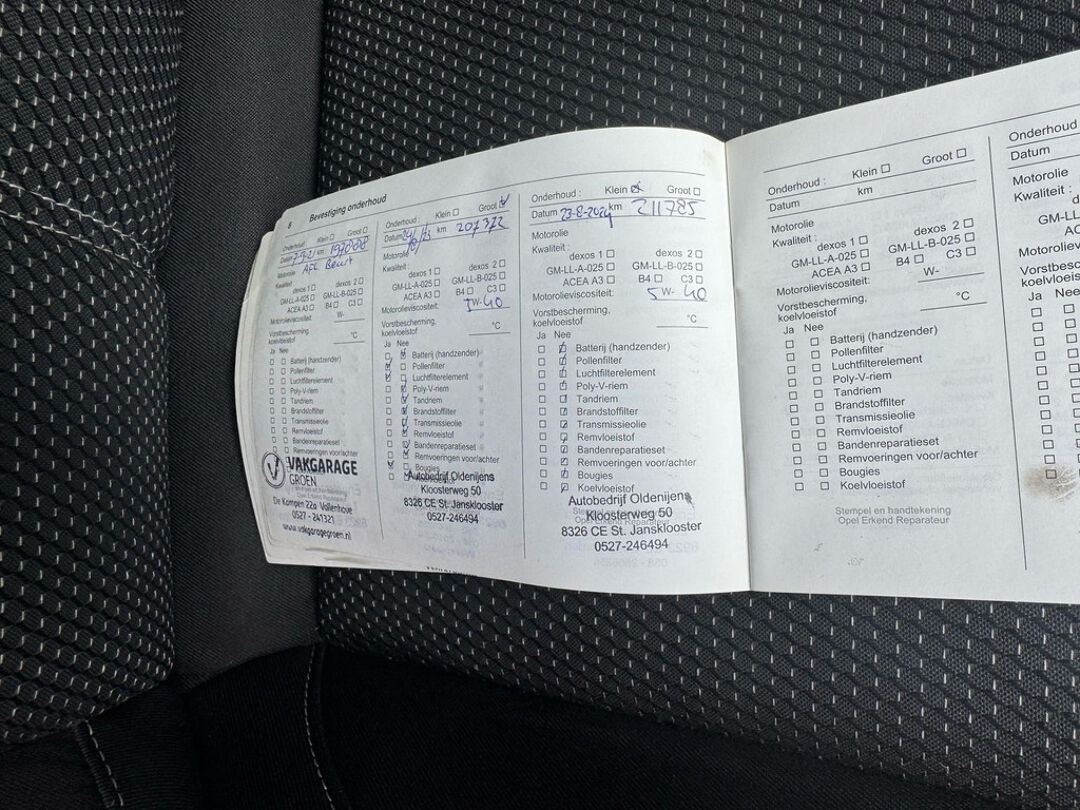 8 Bevestiging onderhoud
Onderhoud : Klein ☐ Groot ☐
Datum 7-9-21 km
Motorolie AFL Beurt
Kwaliteit :
dexos 1 ☐ dexos 2 ☐
GM-LL-A-025 ☐ GM-LL-B-025 ☐
ACEA A3 ☐ B4 ☐ C3 ☐
Motorolieviscositeit:
W-
Vorstbescherming,
koelvloeistof °C
Ja Nee
☐ ☐ Batterij (handzender)
☐ ☐ Pollenfilter
☐ ☐ Luchtfilterelement
☐ ☐ Poly-V-riem
☐ ☐ Tandriem
☐ ☐ Brandstoffilter
☐ ☐ Transmissieolie
☐ ☐ Remvloeistof
☐ ☐ Bandenreparatieset
☐ ☐ Remvoeringen voor/achter
VAKGARAGE
GROEN
Opel Erkend Reparateur
De Kampen 22a Vollenhove
0527 - 241321
www.vakgaragegroen.nl
Onderhoud : Klein ☐ Groot ☑
Datum km 207372
Motorolie
Kwaliteit :
dexos 1 ☐ dexos 2 ☐
GM-LL-A-025 ☐ GM-LL-B-025 ☐
ACEA A3 ☐ B4 ☐ C3 ☐
Motorolieviscositeit:
5W-40
Vorstbescherming,
koelvloeistof °C
Ja Nee
Batterij (handzender)
Pollenfilter
Luchtfilterelement
Poly-V-riem
Tandriem
Brandstoffilter
Transmissieolie
Remvloeistof
Bandenreparatieset
Remvoeringen voor/achter
Bougies
Autobedrijf Oldenijens
Kloosterweg 50
8326 CE St. Jansklooster
0527-246494
Onderhoud : Klein ☒ Groot ☐
Datum 23-8-2024 km 211785
Motorolie
Kwaliteit :
dexos 1 ☐ dexos 2 ☐
GM-LL-A-025 ☐ GM-LL-B-025 ☐
ACEA A3 ☐ B4 ☐ C3 ☐
Motorolieviscositeit: 5W-40
Vorstbescherming,
koelvloeistof °C
Ja Nee
☐ ☑ Batterij (handzender)
☐ ☑ Pollenfilter
☐ ☑ Luchtfilterelement
☐ ☑ Poly-V-riem
☐ ☑ Tandriem
☐ ☑ Brandstoffilter
☐ ☑ Transmissieolie
☐ ☑ Remvloeistof
☐ ☑ Bandenreparatieset
☐ ☑ Remvoeringen voor/achter
☐ ☑ Bougies
☐ ☑ Koelvloeistof
Autobedrijf Oldenijens
Kloosterweg 50
Opel Erkend Reparateur
8326 CE St. Jansklooster
0527-246494
Onderhoud : Klein ☐ Groot ☐
Datum km
Motorolie
Kwaliteit :
dexos 1 ☐ dexos 2 ☐
GM-LL-A-025 ☐ GM-LL-B-025 ☐
ACEA A3 ☐ B4 ☐ C3 ☐
Motorolieviscositeit:
W-
Vorstbescherming,
koelvloeistof °C
Ja Nee
☐ ☐ Batterij (handzender)
☐ ☐ Pollenfilter
☐ ☐ Luchtfilterelement
☐ ☐ Poly-V-riem
☐ ☐ Tandriem
☐ ☐ Brandstoffilter
☐ ☐ Transmissieolie
☐ ☐ Remvloeistof
☐ ☐ Bandenreparatieset
☐ ☐ Remvoeringen voor/achter
☐ ☐ Bougies
☐ ☐ Koelvloeistof
Stempel en handtekening
Opel Erkend Reparateur
Onderhoud
Datum
Motorolie
Kwaliteit :
GM-LL
AC
Motoroliev
Vorstbesc
koelvloeis
Ja Nee